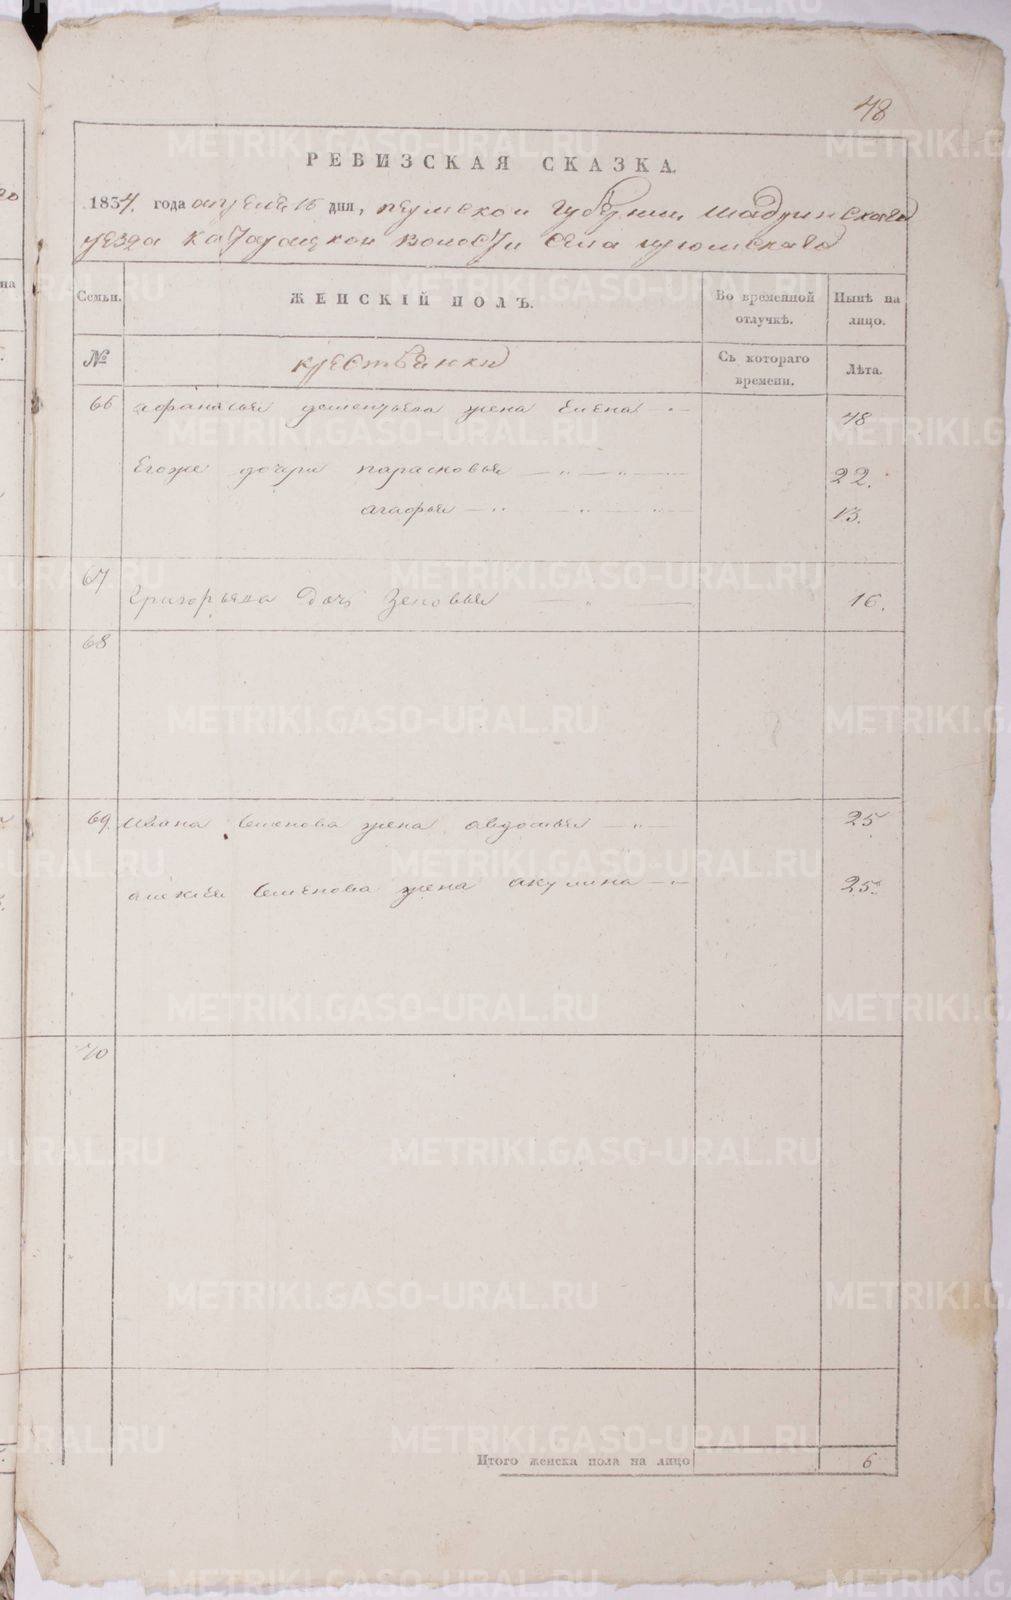 48
РЕВИЗСКАЯ СКАЗКА.
1834. года апреля 16 дня, пермской губернии, шадринскаго
уезда Катарацкой волости села
Семьи. ЖЕНСКІЙ ПОЛЪ. Во временной отлучкѣ. Нынѣ на лицо.
№ крестьянки Съ котораго времени. Лѣта.
66 афанасья дементьева жена Елена 48
Егоже дочери парасковья 22.
агафья 13.
67 Григорьева дочь Зеновья 16.
68
69. ивана семенова жена авдотья 25
алексея семенова жена акулина 25.
70
Итого женска пола на лицо 6
METRIKI.GASO-URAL.RU